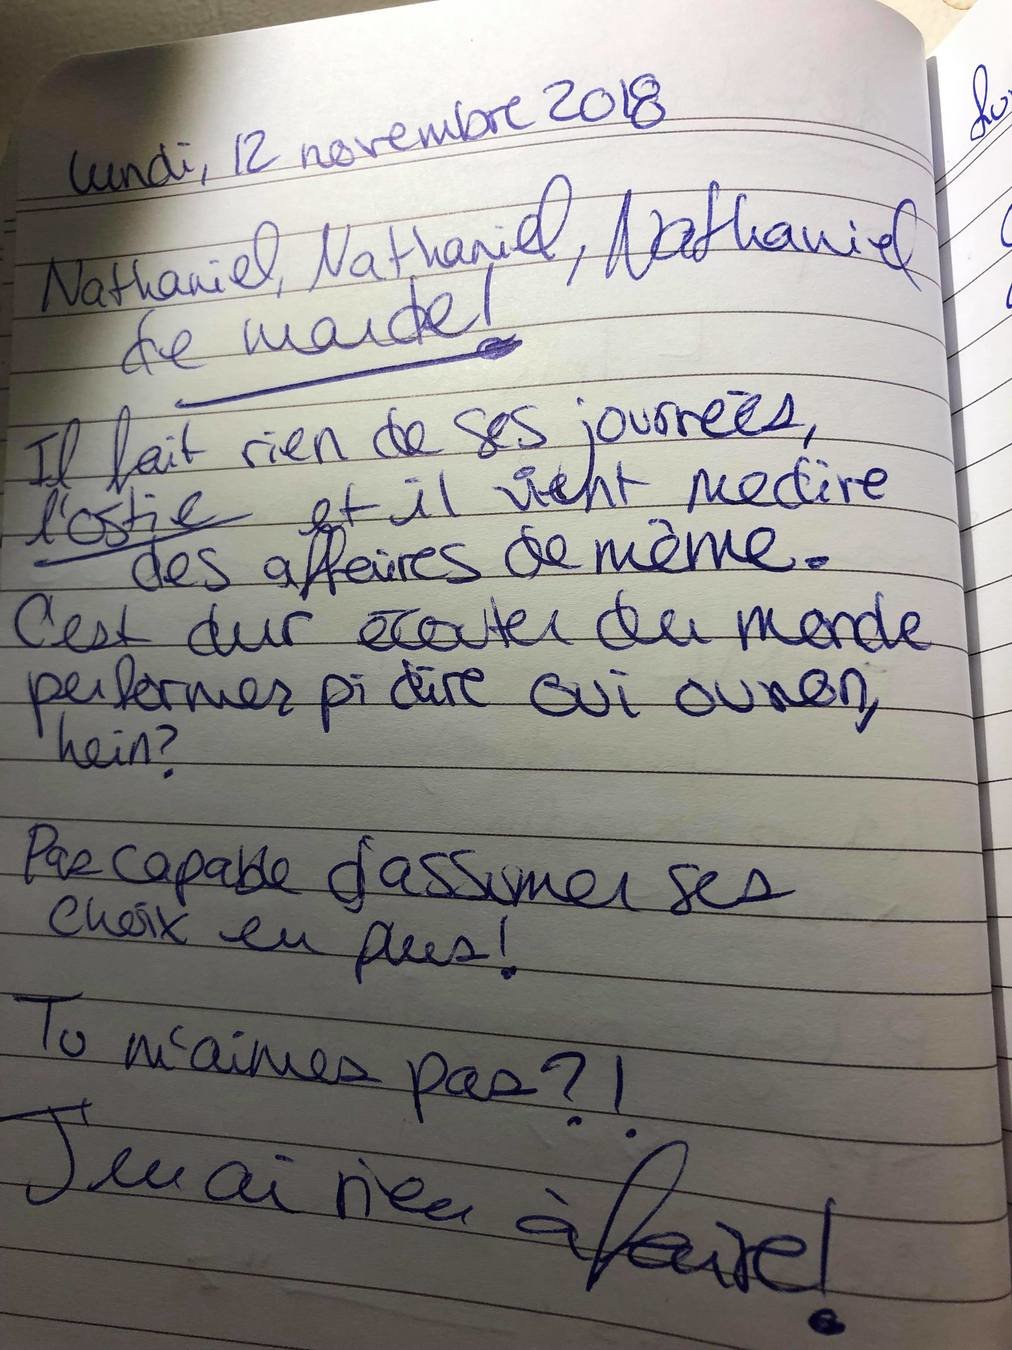 lundi, 12 novembre 2018
Nathaniel, Nathaniel, Nathaniel
de marde!
Il fait rien de ses journées,
l'ostie et il vient me dire
des affaires de même.
C'est dur écouter du monde
performer pi dire oui ou non,
hein?
Pas capable d'assumer ses
choix en plus!
Tu m'aimes pas?!
J'en ai rien à faire!